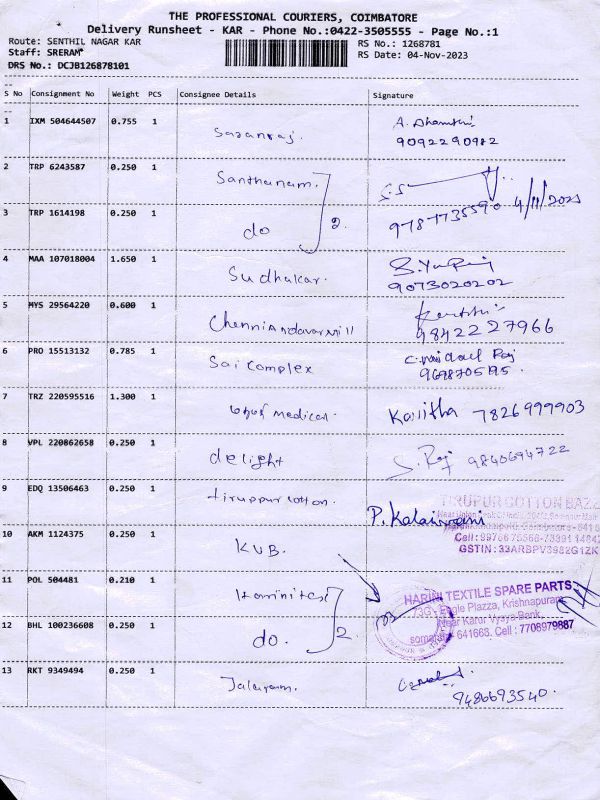 THE PROFESSIONAL COURIERS, COIMBATORE
Delivery Runsheet - KAR - Phone No.:0422-3505555 - Page No.:1
Route: SENTHIL NAGAR KAR
RS No.: 1268781
Staff: SRERAM
RS Date: 04-Nov-2023
DRS No.: DCJB126878101
S No Consignment No Weight PCS Consignee Details Signature
1 IXM 504644507 0.755 1 Saranraj. A. Dhamthi
9092290982
2 TRP 6243587 0.250 1 Santhanam.
3 TRP 1614198 0.250 1 do 2. 9787735590 4/11/2023
4 MAA 107018004 1.650 1 Sudhakar.
9073020202
5 MYS 29564220 0.600 1 Chenniandavarmill
9842227966
6 PRO 15513132 0.785 1 Sai Complex
7 TRZ 220595516 1.300 1 medical. Kavitha 7826999903
8 VPL 220862658 0.250 1 delight S. Raj 9840694722
9 EDQ 13506463 0.250 1 tiruppur cotton. P. Kalaivani
TIRUPUR COTTON BAZZ
10 AKM 1124375 0.250 1 KVB.
GSTIN: 33ARBPV3982G1ZK
11 POL 504481 0.210 1
HARINI TEXTILE SPARE PARTS
73G, Eagle Plazza, Krishnapuram
Near Karur Vysya Bank,
12 BHL 100236608 0.250 1 do. 2
641663. Cell : 7708979887
13 RKT 9349494 0.250 1 Jalaram.
9486693540.